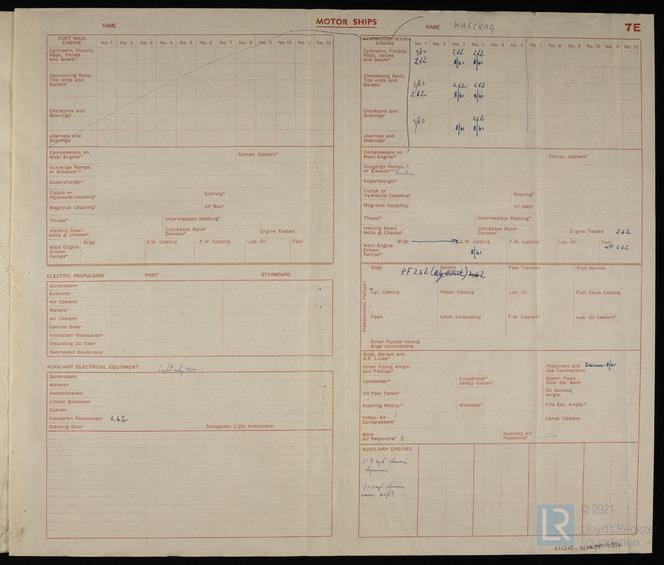 MOTOR SHIPS
7E
NAME
NAME WALCRAG
PORT MAIN ENGINE No. 1 No. 2 No. 3 No. 4 No. 5 No. 6 No. 7 No. 8 No. 9 No. 10 No. 11 No. 12
Cylinders, Pistons, Rods, Valves and Gears
Connecting Rods, Top ends and Guides
Crankpins and Bearings
Journals and Bearings
Compressors on Main Engine Compr. Coolers
Scavenge Pumps or Blowers
Supercharger
Clutch or Hydraulic Coupling Gearing
Magnetic Coupling Air Gap
Thrust Intermediate Shafting
Holding Down Bolts & Chocks Crankcase Relief Devices Engine Tested
Main Engine Driven Pumps Bilge S.W. Cooling F.W. Cooling Lub. Oil Fuel
ELECTRIC PROPULSION PORT STARBOARD
Generators
Exciters
Air Coolers
Motors
Air Coolers
Control Gear
Insulation Resistance
Insulating Oil Test
Overspeed Governors
AUXILIARY ELECTRICAL EQUIPMENT Light only
Generators
Motors
Switchboards
Circuit Breakers
Cables
Insulation Resistance 2.62
Steering Gear Navigation Light Indicators
STARBOARD MAIN ENGINE No. 1 No. 2 No. 3 No. 4 No. 5 No. 6 No. 7 No. 8 No. 9 No. 10 No. 11 No. 12
Cylinders, Pistons, Rods, Valves and Gears 2.62 2.62 2.62
8/61 8/61
Connecting Rods, Top ends and Guides 2.62 2.62 2.62
8/61 8/61
Crankpins and Bearings 2.62
8/61 8/61
Journals and Bearings
Compressors on Main Engine 1 Compr. Coolers
Scavenge Pumps or Blowers
Supercharger
Clutch or Hydraulic Coupling Gearing
Magnetic Coupling Air Gap
Thrust Intermediate Shafting
Holding Down Bolts & Chocks Crankcase Relief Devices Engine Tested 2.62
Main Engine Driven Pumps Bilge S.W. Cooling F.W. Cooling Lub. Oil Fuel
8/61 HP. 2.62
Independent Pumps
Bilge Ballast Fuel Transfer Fuel Service
PF 2.62
Cyl. Cooling Piston Cooling Lub. Oil Fuel Valve Cooling
Feed Cond. Circulating F.W. Coolers Lub. Oil Coolers
Other Pumps having Bilge Connections
Bilge, Ballast and O.F. Lines
Other Piping Arrgts and Fittings Propellers and Sea Connections
Condenser Evaporator Safety Valves Steam Pipes Over 3in. Bore
Oil Fuel Tanks Oil Burning Arrgts.
Steering Motor Windlass Fire Ext. Arrgts.
Indep. Air Compressors 1 Comp. Coolers
Main Air Receivers 2 Auxiliary Air Receivers
AUXILIARY ENGINES
LR
© 2021
Lloyd's Register
Foundation